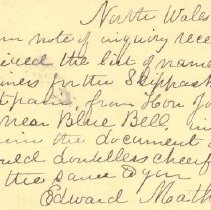 North Wales
note of inquiry rece
ived the list of name
iners for the Skippack
from Hon
near Blue Bell, in
the document
uld doubtless cheerf
the same to you
Edward Math